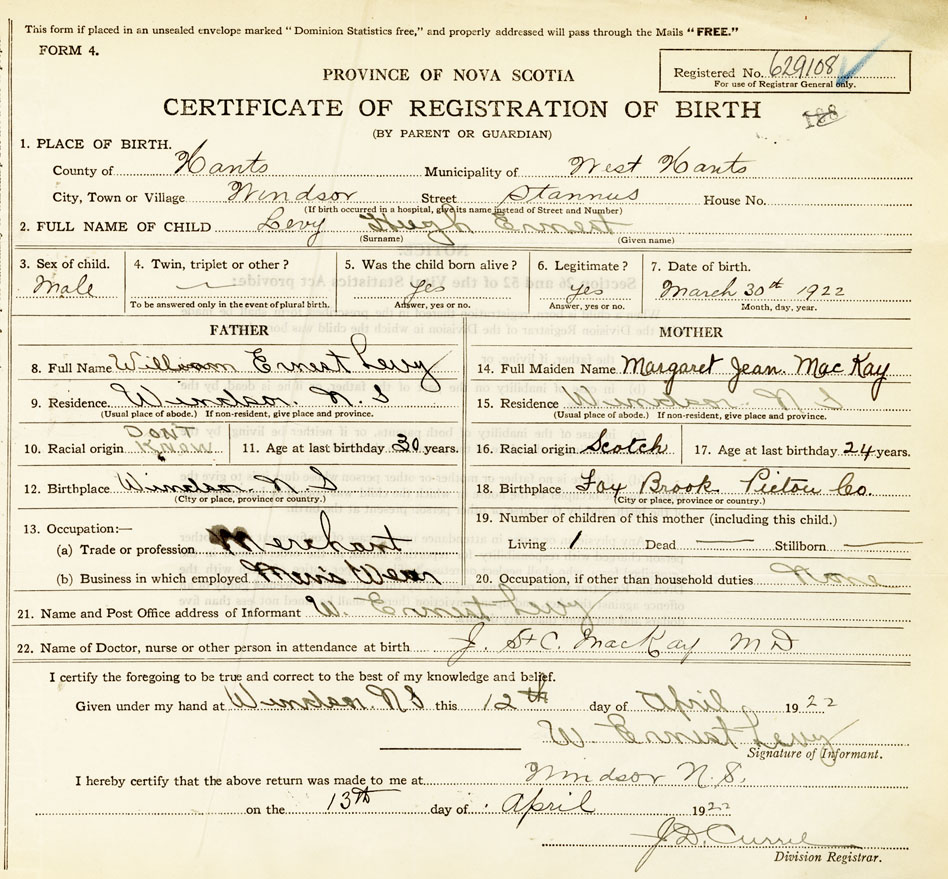 This form if placed in an unsealed envelope marked "Dominion Statistics free," and properly addressed will pass through the Mails "FREE."
FORM 4.
Registered No. 629108
For use of Registrar General only.
PROVINCE OF NOVA SCOTIA
CERTIFICATE OF REGISTRATION OF BIRTH
188
(BY PARENT OR GUARDIAN)
1. PLACE OF BIRTH.
County of Hants Municipality of West Hants
City, Town or Village Windsor Street Stannus House No.
(If birth occurred in a hospital, give its name instead of Street and Number)
2. FULL NAME OF CHILD Levy Hugh Ernest
(Surname) (Given name)
3. Sex of child. 4. Twin, triplet or other? 5. Was the child born alive? 6. Legitimate? 7. Date of birth.
Male yes yes March 30th 1922
To be answered only in the event of plural birth. Answer, yes or no. Answer, yes or no. Month, day, year.
FATHER MOTHER
8. Full Name William Ernest Levy 14. Full Maiden Name Margaret Jean MacKay
9. Residence Windsor. N. S 15. Residence Windsor. N S
(Usual place of abode.) If non-resident, give place and province. (Usual place of abode.) If non-resident, give place and province.
10. Racial origin DONT KNOW 11. Age at last birthday 30 years. 16. Racial origin Scotch 17. Age at last birthday 24 years.
12. Birthplace Windsor. N. S 18. Birthplace Fox Brook Pictou Co.
(City or place, province or country.) (City or place, province or country.)
13. Occupation:— 19. Number of children of this mother (including this child.)
(a) Trade or profession Merchant Living 1 Dead Stillborn
(b) Business in which employed Mens Wear 20. Occupation, if other than household duties None
21. Name and Post Office address of Informant W. Ernest Levy
22. Name of Doctor, nurse or other person in attendance at birth J. St C. MacKay M D
I certify the foregoing to be true and correct to the best of my knowledge and belief.
Given under my hand at Windsor. N S this 12th day of April 1922
W Ernest Levy
Signature of Informant.
I hereby certify that the above return was made to me at Windsor N. S.
on the 13th day of April 1922
J. D. Currie
Division Registrar.